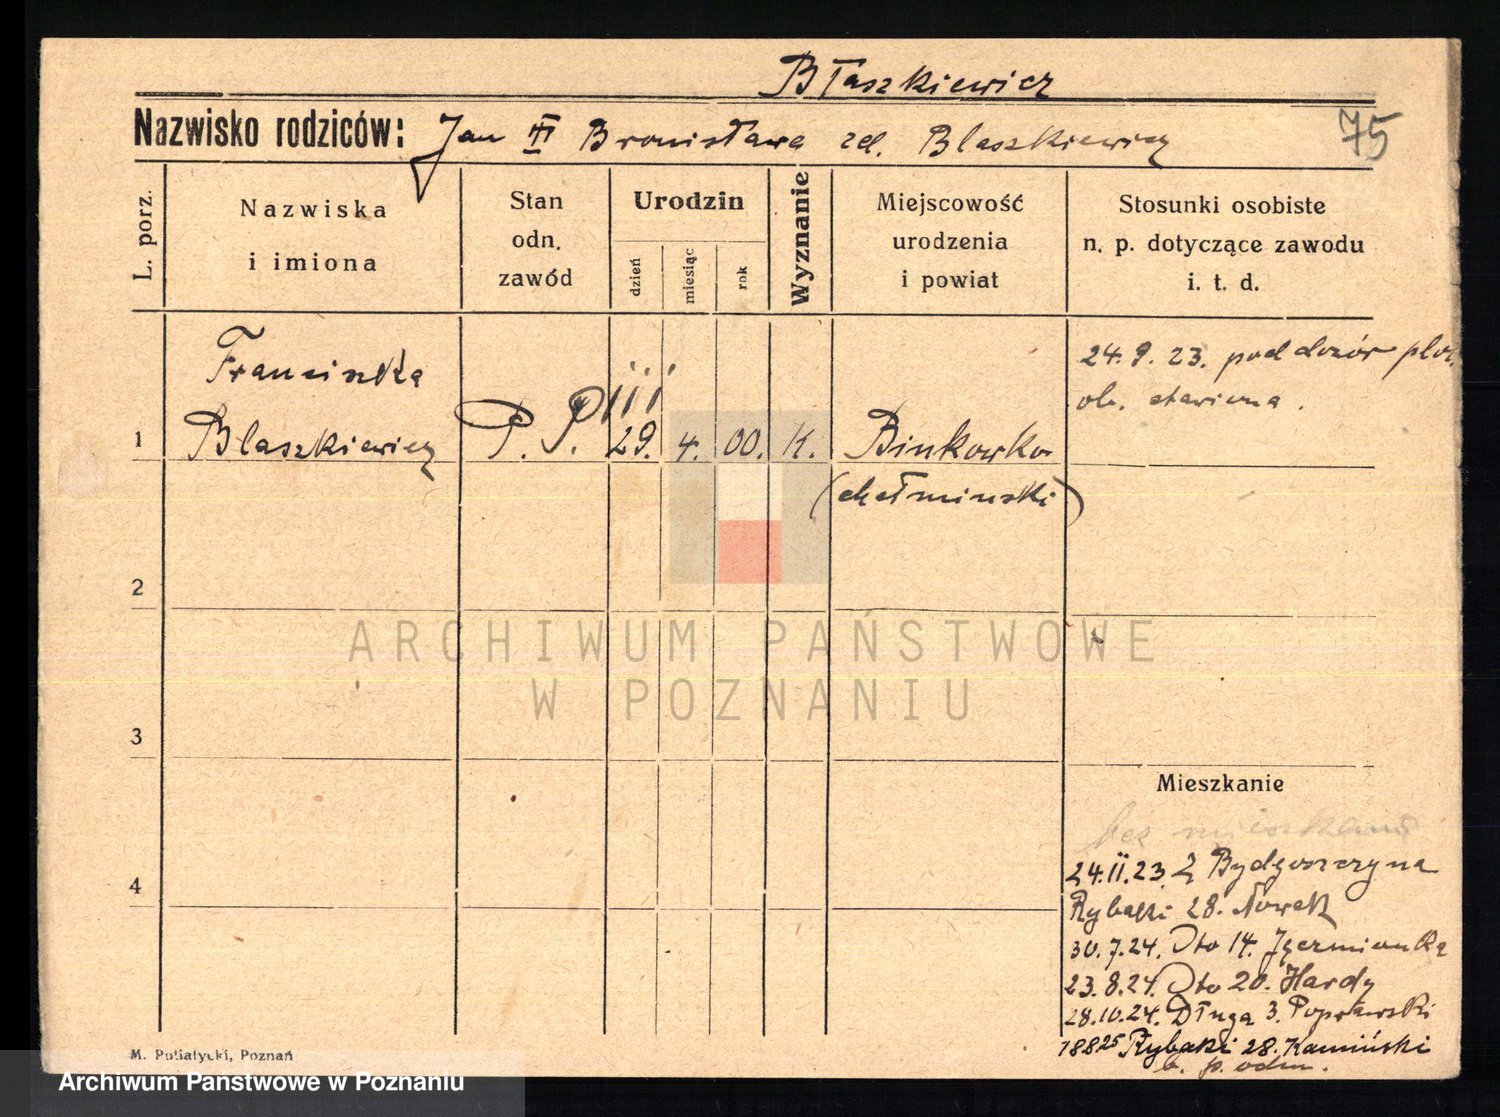 Błaszkiewicz
Nazwisko rodziców: Jan Bronisława zd. Blaszkiewicz
75
L. porz.
Nazwiska
i imiona
Stan
odn.
zawód
Urodzin
dzień
miesiąc
rok
Wyznanie
Miejscowość
urodzenia
i powiat
Stosunki osobiste
n. p. dotyczące zawodu
i. t. d.
1
Franciszka
Blaszkiewicz
P. P.
29. 4. 00. K.
Binkowko
(chełminski)
24.9.23. pod dozór
ob.
2
ARCHIWUM PAŃSTWOWE
W POZNANIU
3
Mieszkanie
bez mieszkania
4
24.II.23. Z Bydgoszczy na
Rybaki 28. Nowak
30.7.24. Dto 14.
23.8.24. Dto 20. Hardy
28.10.24. Długa 3. Popławski
18825 Rybaki 28. Kamiński
b. p. odm.
M. Putiatycki, Poznań
Archiwum Państwowe w Poznaniu